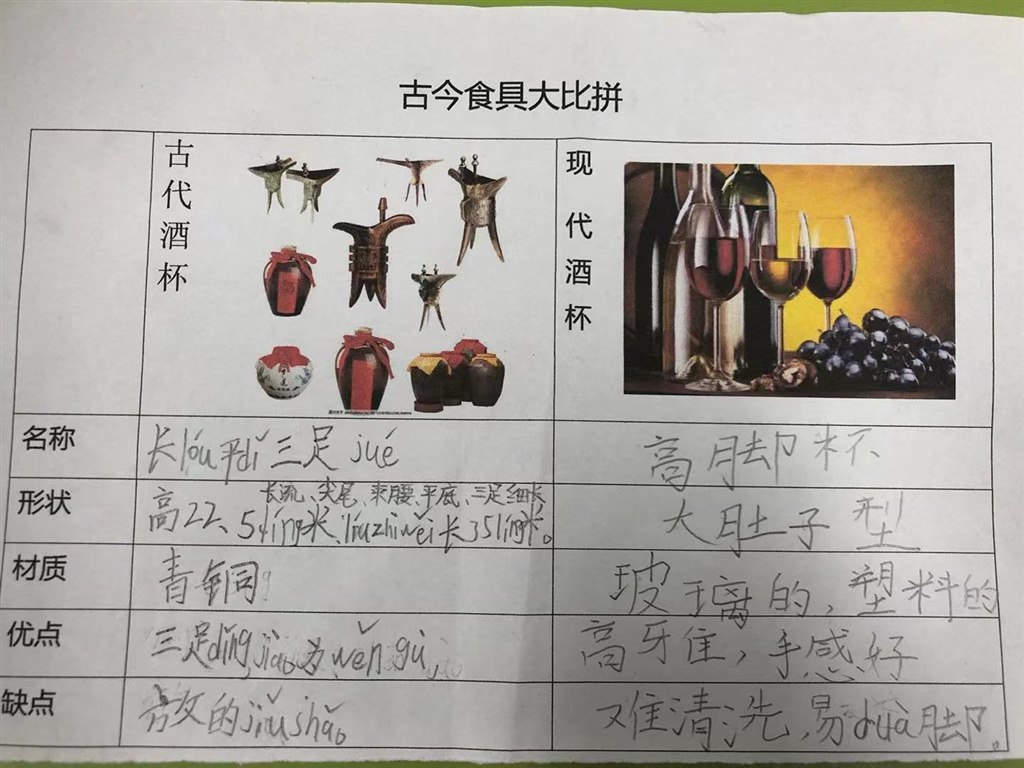 古今食具大比拼
古代酒杯
现代酒杯
名称
长lóu平dǐ三足 jué
高脚杯
形状
长流、尖尾、束腰、平底、三足细长
高22、5límǐ米、liúzhìwěi长35límǐ米。
大肚子型
材质
青铜
玻璃的,塑料的
优点
三足dǐng wěn gù
高雅,手感好
缺点
放的jiǔ shǎo
难清洗,易duàn脚。